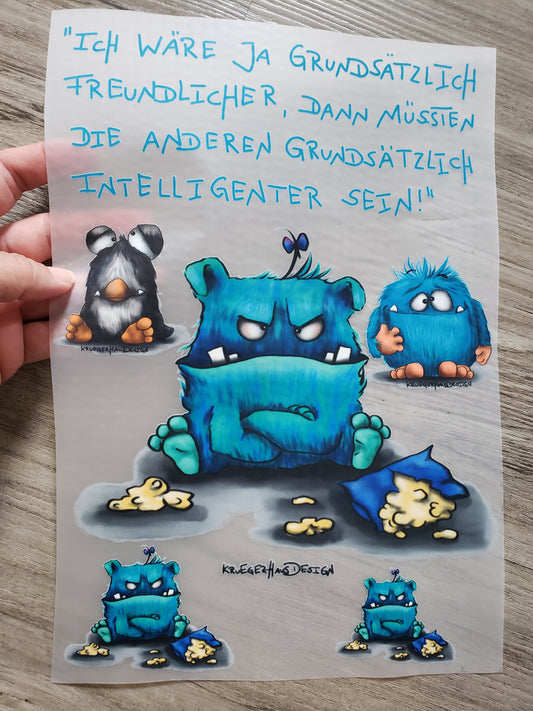 "ICH WÄRE JA GRUNDSÄTZLICH
FREUNDLICHER, DANN MÜSSTEN
DIE ANDEREN GRUNDSÄTZLICH
INTELLIGENTER SEIN!"
KRUEGERHAUSDESIGN
KRUEGERHAUSDESIGN
KRUEGERHAUSDESIGN